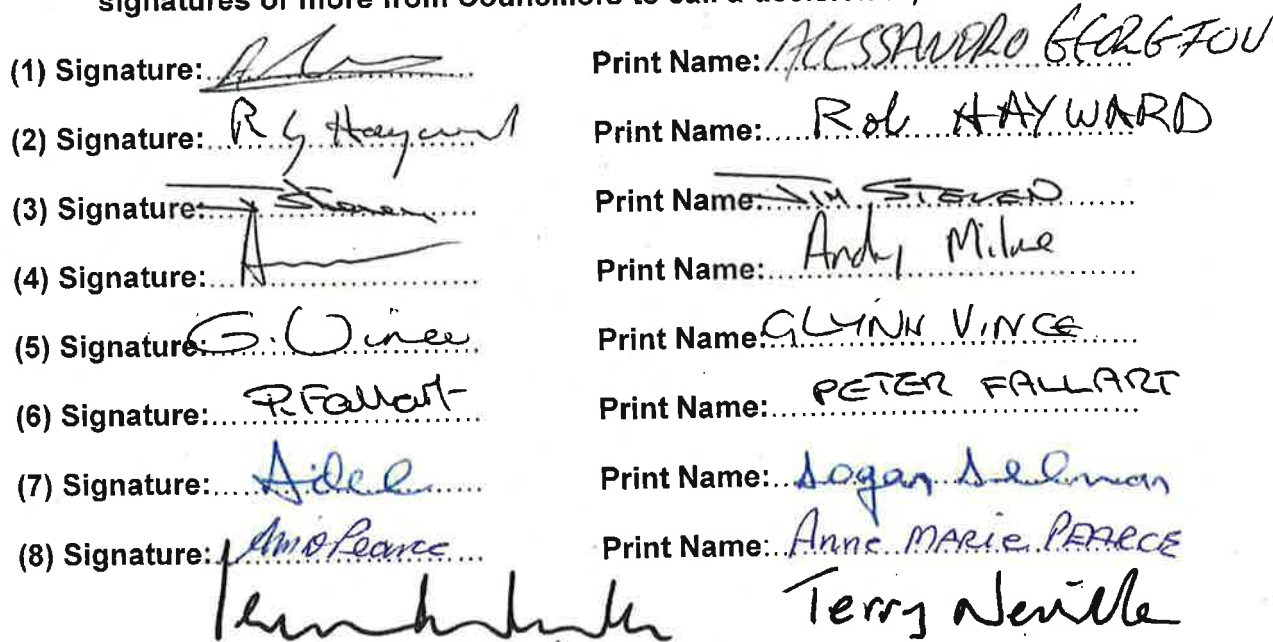 signatures or more from Councillors to call a decision
(1) Signature: Print Name: ALESSANDRO GEORGIOU
(2) Signature: R G Hayward Print Name: Rob HAYWARD
(3) Signature: Print Name: JIM STEVEN
(4) Signature: Print Name: Andy Milne
(5) Signature: G. Vince Print Name: GLYNN VINCE
(6) Signature: P. Fallart Print Name: PETER FALLART
(7) Signature: Print Name: Dogan Delman
(8) Signature: AMPearce Print Name: Anne MARIE PEARCE
Terry Neville